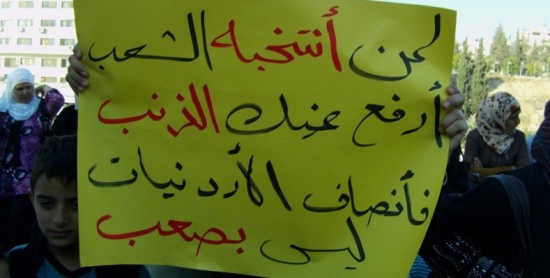 لمن أنتخبه الشعب
أرفع عنك الذنب
فأنصاف الأردنيات
ليس بصعب